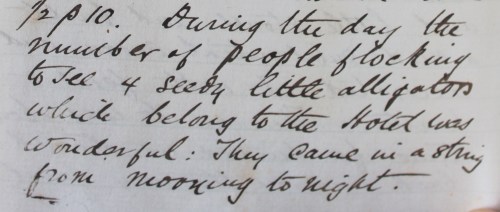 1/2 p 10. During the day the
number of people flocking
to see 4 seedy little alligators
which belong to the Hotel was
wonderful: They came in a string
from morning to night.